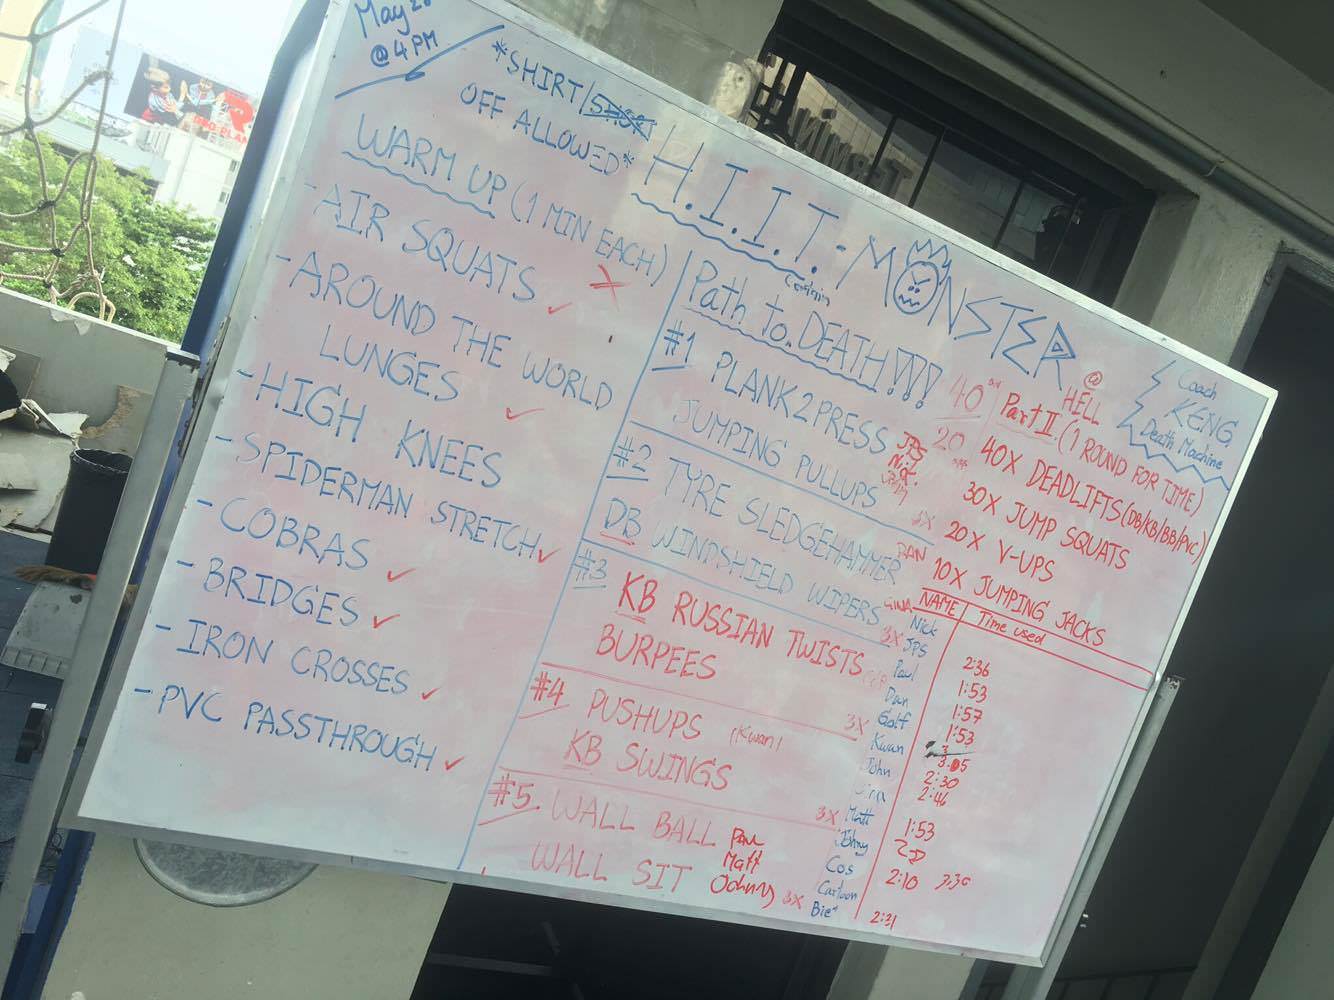 @ 4 PM
*SHIRT/
OFF ALLOWED*
H.I.I.T-MONSTER
@
HELL
Coach
KENG
Death Machine
WARM UP (1 MIN EACH)
- AIR SQUATS
- AROUND THE WORLD
LUNGES
- HIGH KNEES
- SPIDERMAN STRETCH
- COBRAS
- BRIDGES
- IRON CROSSES
- PVC PASSTHROUGH
Path to DEATH!!!!
40
20
#1 PLANK 2 PRESS
JUMPING PULLUPS
#2 TYRE SLEDGEHAMMER
DB WINDSHIELD WIPERS
#3 KB RUSSIAN TWISTS
BURPEES
3X
#4 PUSHUPS
(Kwan)
KB SWINGS
3X
#5. WALL BALL
WALL SIT
Matt
3X
JPS
DAN
GINA
Part II (1 ROUND FOR TIME)
40X DEADLIFTS (DB/KB/BB/PVC)
30X JUMP SQUATS
20X V-UPS
10X JUMPING JACKS
NAME Time used
Nick 2:36
JPS 1:53
Paul 1:57
Dan 1:53
Golf 3:05
Kwan 2:30
John 2:46
Matt 1:53
Johny
Cos 2:10
Cartoon
Bier 2:31
TERMIN